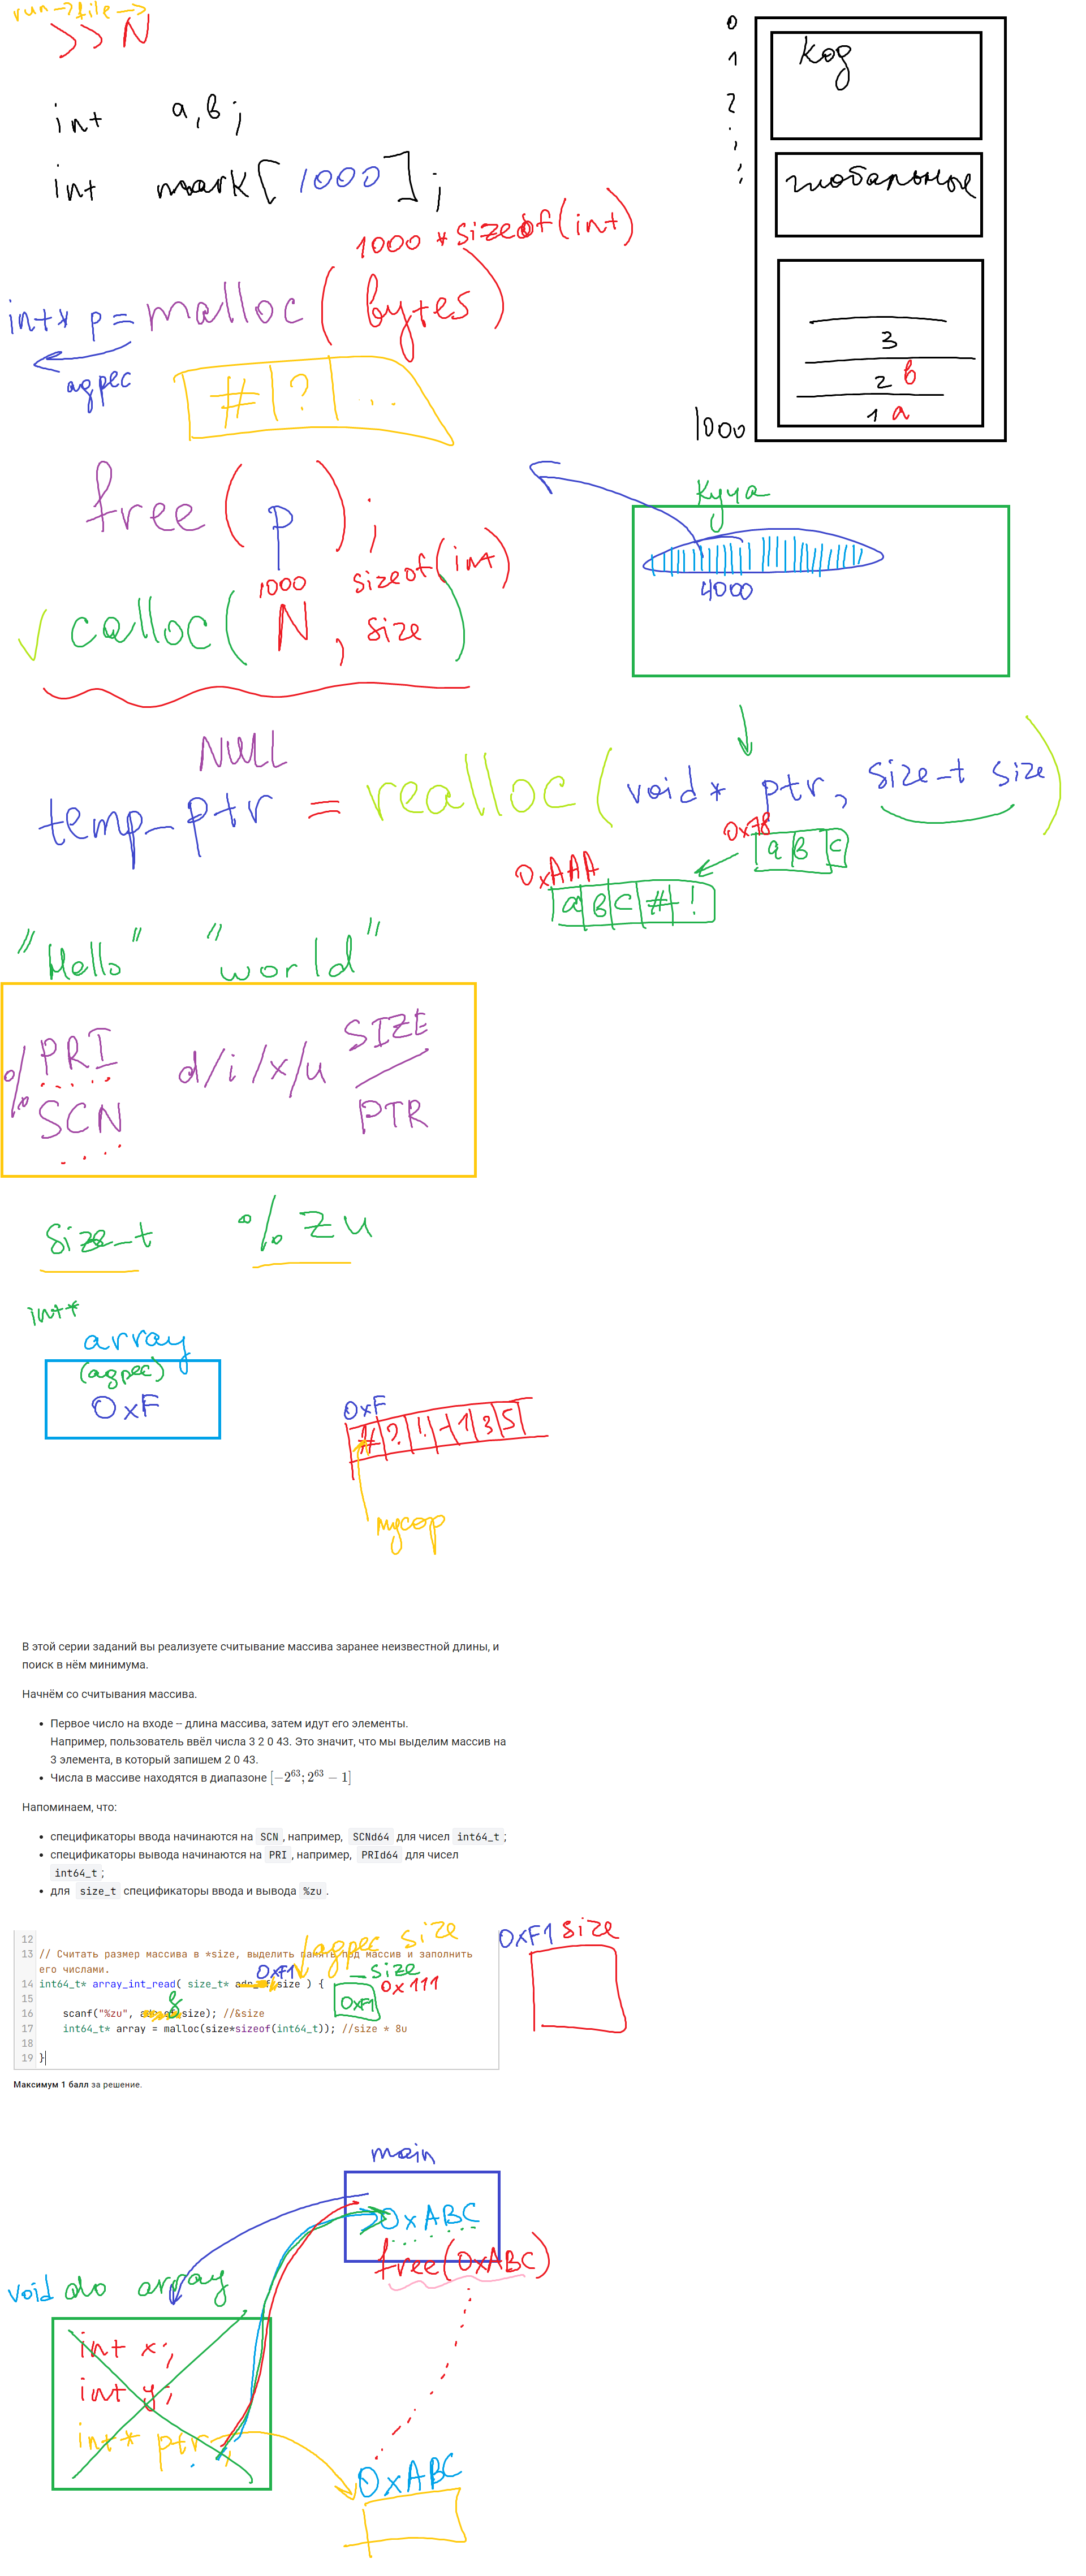 run -> file ->
>> N
int a, b;
int mark[1000];
1000 * sizeof(int)
int* p = malloc(bytes)
адрес
# ? ...
free(p);
1000 sizeof(int)
calloc(N, size)
0
1
2
код
глобальные
3
2 b
1 a
1000
куча
4000
NULL
temp_ptr = realloc(void* ptr, size_t size)
0x78
a b c
0xAAA
a b c # !
"Hello" "world"
% PRI d/i/x/u SIZE
SCN PTR
size_t %zu
int*
array
(адрес)
0xF
0xF
# ? ! -1 3 5
мусор
В этой серии заданий вы реализуете считывание массива заранее неизвестной длины, и
поиск в нём минимума.
Начнём со считывания массива.
• Первое число на входе – длина массива, затем идут его элементы.
Например, пользователь ввёл числа 3 2 0 43. Это значит, что мы выделим массив на
3 элемента, в который запишем 2 0 43.
• Числа в массиве находятся в диапазоне [−2^63; 2^63 − 1]
Напоминаем, что:
• спецификаторы ввода начинаются на SCN, например, SCNd64 для чисел int64_t;
• спецификаторы вывода начинаются на PRI, например, PRId64 для чисел
int64_t;
• для size_t спецификаторы ввода и вывода %zu.
адрес size
0xF1 size
12
13 // Считать размер массива в *size, выделить память под массив и заполнить
его числами.
0xF1
size
0x111
14 int64_t* array_int_read( size_t* size ) {
15
&
0xF1
16 scanf("%zu", size); //&size
17 int64_t* array = malloc(size*sizeof(int64_t)); //size * 8u
18
19 }
Максимум 1 балл за решение.
main
0xABC
free(0xABC)
void do array
int x;
int y;
int* ptr;
0xABC